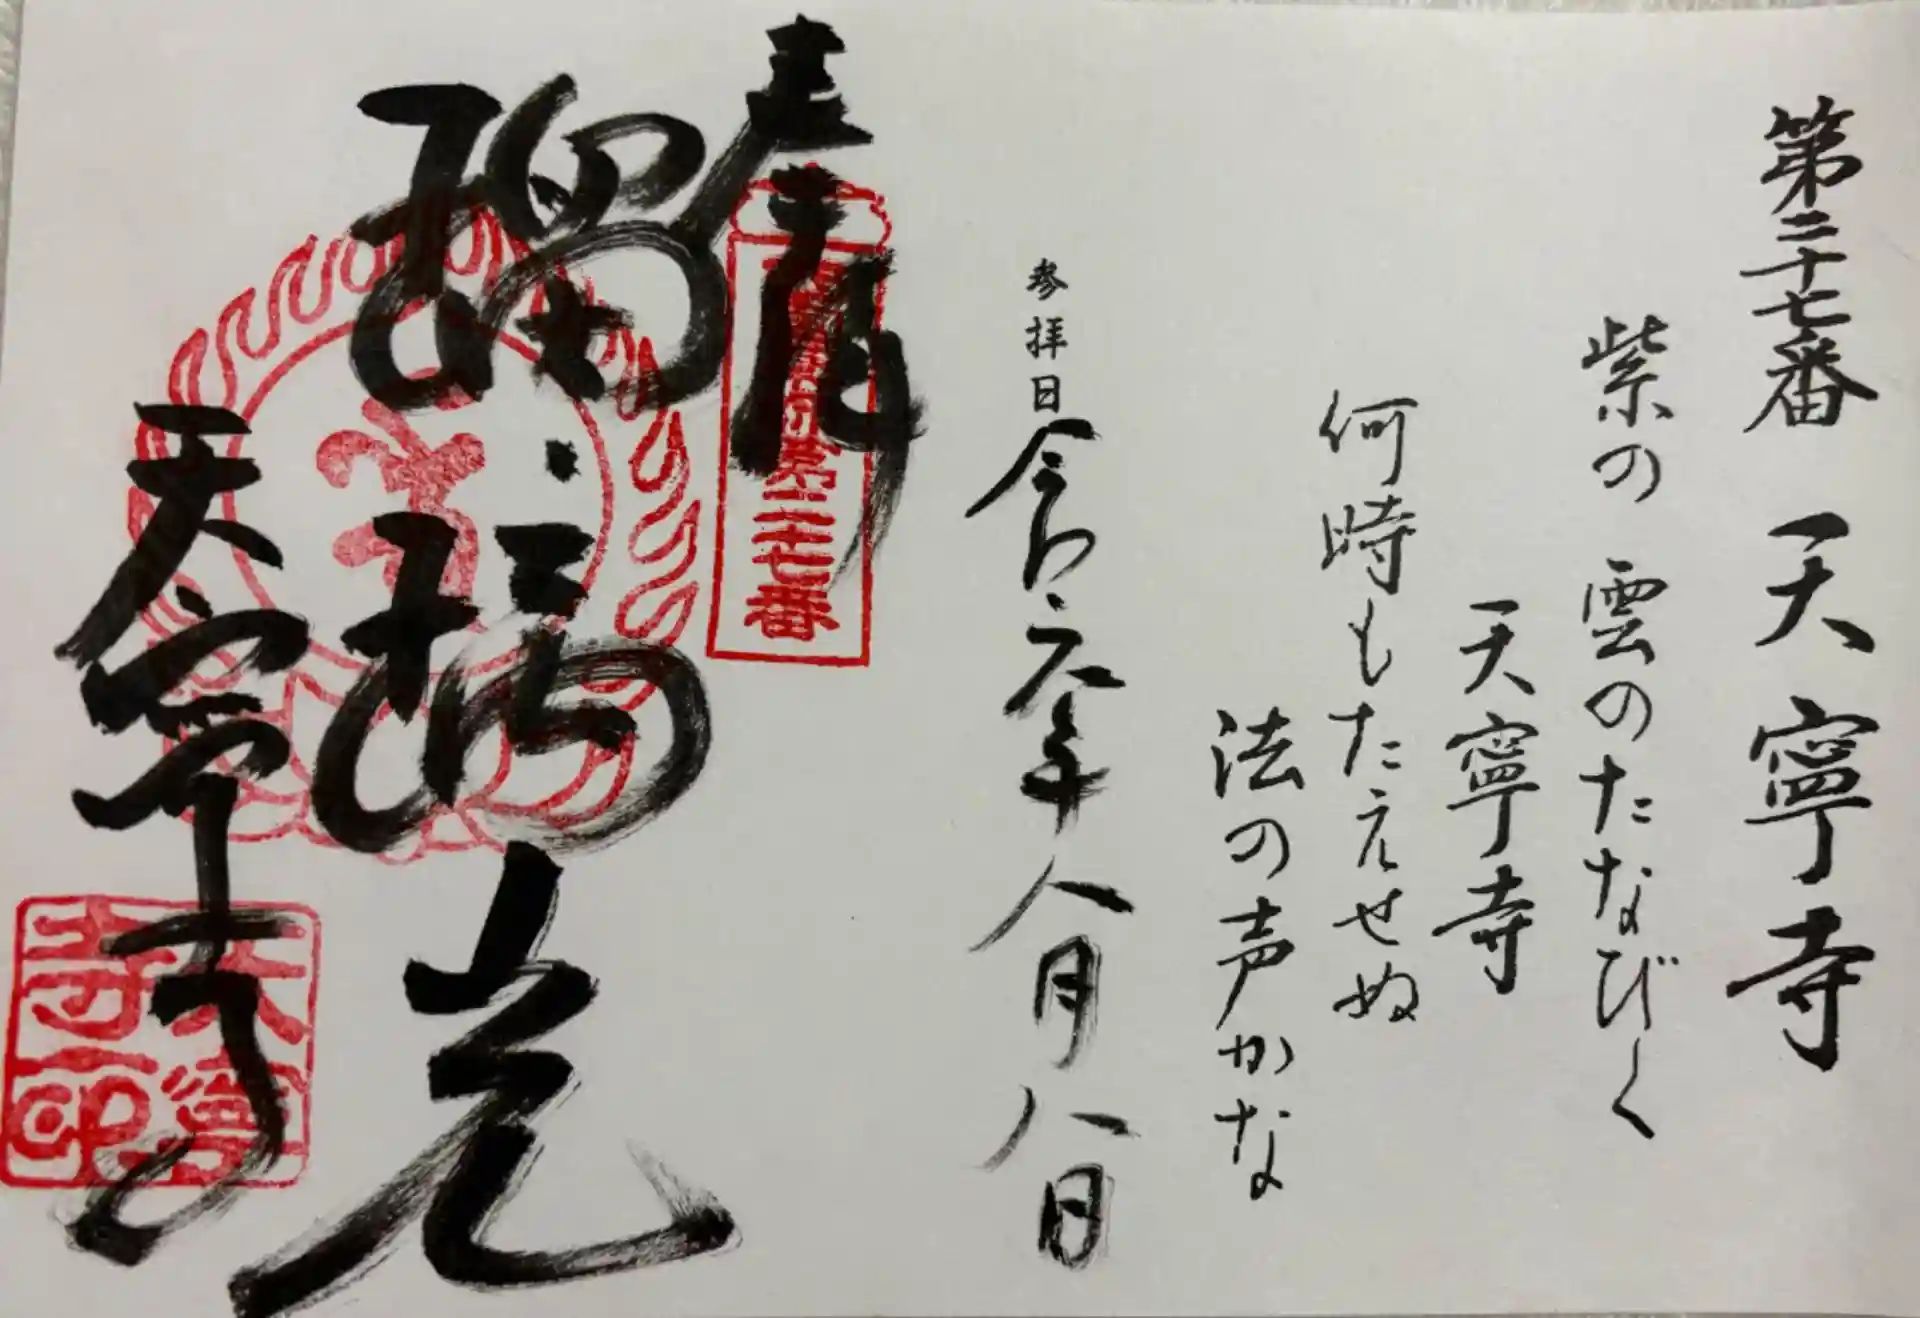 第二十七番 天寧寺
紫の 雲のたなびく
天寧寺
何時もたえせぬ
法の声かな
参拝日 令和元年八月八日
奉拝
第二十七番
瑠璃光
天寧寺
天寧寺印